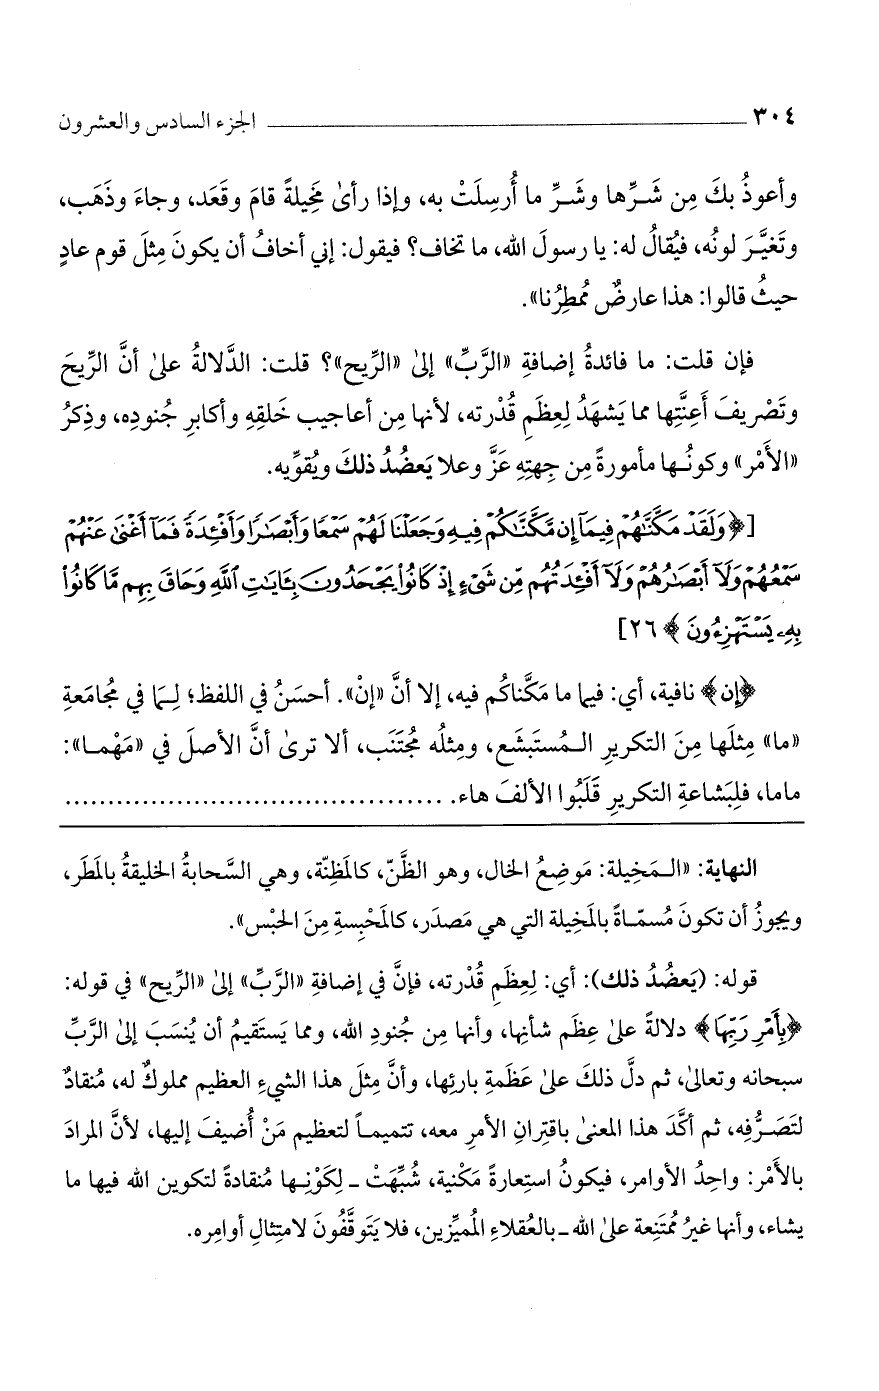 ٣٠٤ ــــــــــــــــــــــــــــــــــــــــــــــــــــ الجزء السادس والعشرون
وأعوذُ بكَ مِن شَـرِّها وشَـرِّ ما أُرسِلَتْ به، وإذا رأىٰ مَخِيلةً قامَ وقَعَد، وجاءَ وذَهَب،
وتَغيَّـرَ لونُه، فيُقالُ له: يا رسولَ الله، ما تخاف؟ فيقول: إني أخافُ أن يكونَ مِثلَ قوم عادٍ
حيثُ قالوا: هذا عارضٌ مُمطِرُنا».
فإن قلت: ما فائدةُ إضافةِ «الرَّبِّ» إلىٰ «الرِّيح»؟ قلت: الدَّلالةُ علىٰ أنَّ الرِّيحَ
وتَصْريفَ أَعِنَّتِها مما يَشهَدُ لِعِظَمِ قُدْرته، لأنها مِن أعاجيب خَلقِهِ وأكابرِ جُنودِه، وذِكرُ
«الأَمْر» وكونُـها مأمورةً مِن جِهتِهِ عَزَّ وعلا يَعضُدُ ذلكَ ويُقوِّيه.
[﴿وَلَقَدْ مَكَّنَّٰهُمْ فِيمَآ إِن مَّكَّنَّٰكُمْ فِيهِ وَجَعَلْنَا لَهُمْ سَمْعًا وَأَبْصَٰرًا وَأَفْـِٔدَةً فَمَآ أَغْنَىٰ عَنْهُمْ
سَمْعُهُمْ وَلَآ أَبْصَٰرُهُمْ وَلَآ أَفْـِٔدَتُهُم مِّن شَىْءٍ إِذْ كَانُوا۟ يَجْحَدُونَ بِـَٔايَٰتِ ٱللَّهِ وَحَاقَ بِهِم مَّا كَانُوا۟
بِهِۦ يَسْتَهْزِءُونَ﴾ ٢٦]
﴿إن﴾ نافية، أي: فيما ما مَكَّناكُم فيه، إلا أنَّ «إنْ». أحسَنُ في اللفظ؛ لِـمَا في مُجامَعةِ
«ما» مِثلَها مِنَ التكريرِ الـمُستَبشَع، ومِثلُه مُجتَنَب، ألا ترىٰ أنَّ الأصلَ في «مَهْمـا»:
ماما، فلِبَشاعةِ التكريرِ قَلَبُوا الألفَ هاء. ............................................
النهاية: «الـمَخِيلة: مَوضِعُ الخال، وهو الظَّنّ، كالمَظِنّة، وهي السَّحابةُ الخليقةُ بالمَطَر،
ويجوزُ أن تكونَ مُسمّـاةً بالمَخِيلة التي هي مَصدَر، كالمَحْبِسةِ مِنَ الحَبْس».
قوله: (يَعضُدُ ذلك): أي: لِعِظَمِ قُدْرته، فإنَّ في إضافةِ «الرَّبِّ» إلىٰ «الرِّيح» في قوله:
﴿بِأَمْرِ رَبِّهَا﴾ دلالةً علىٰ عِظَم شأنِها، وأنها مِن جُنودِ الله، ومما يَستَقيمُ أن يُنسَبَ إلىٰ الرَّبِّ
سبحانه وتعالىٰ، ثم دلَّ ذلكَ علىٰ عَظَمةِ بارئِها، وأنَّ مِثلَ هذا الشيءِ العظيم مملوكٌ له، مُنقادٌ
لتَصَـرُّفِه، ثم أكَّدَ هذا المعنىٰ باقتِرانِ الأمرِ معه، تتميمـاً لتعظيم مَنْ أُضيفَ إليها، لأنَّ المرادَ
بالأَمْر: واحِدُ الأوامر، فيكونُ استِعارةً مَكْنية، شُبِّهَتْ ـ لِكَوْنِـها مُنقادةً لتكوين الله فيها ما
يشاء، وأنها غيرُ مُمتَنِعة علىٰ الله ـ بالعُقلاءِ المُميِّزين، فلا يَتَوقَّفُونَ لامتِثالِ أوامِره.